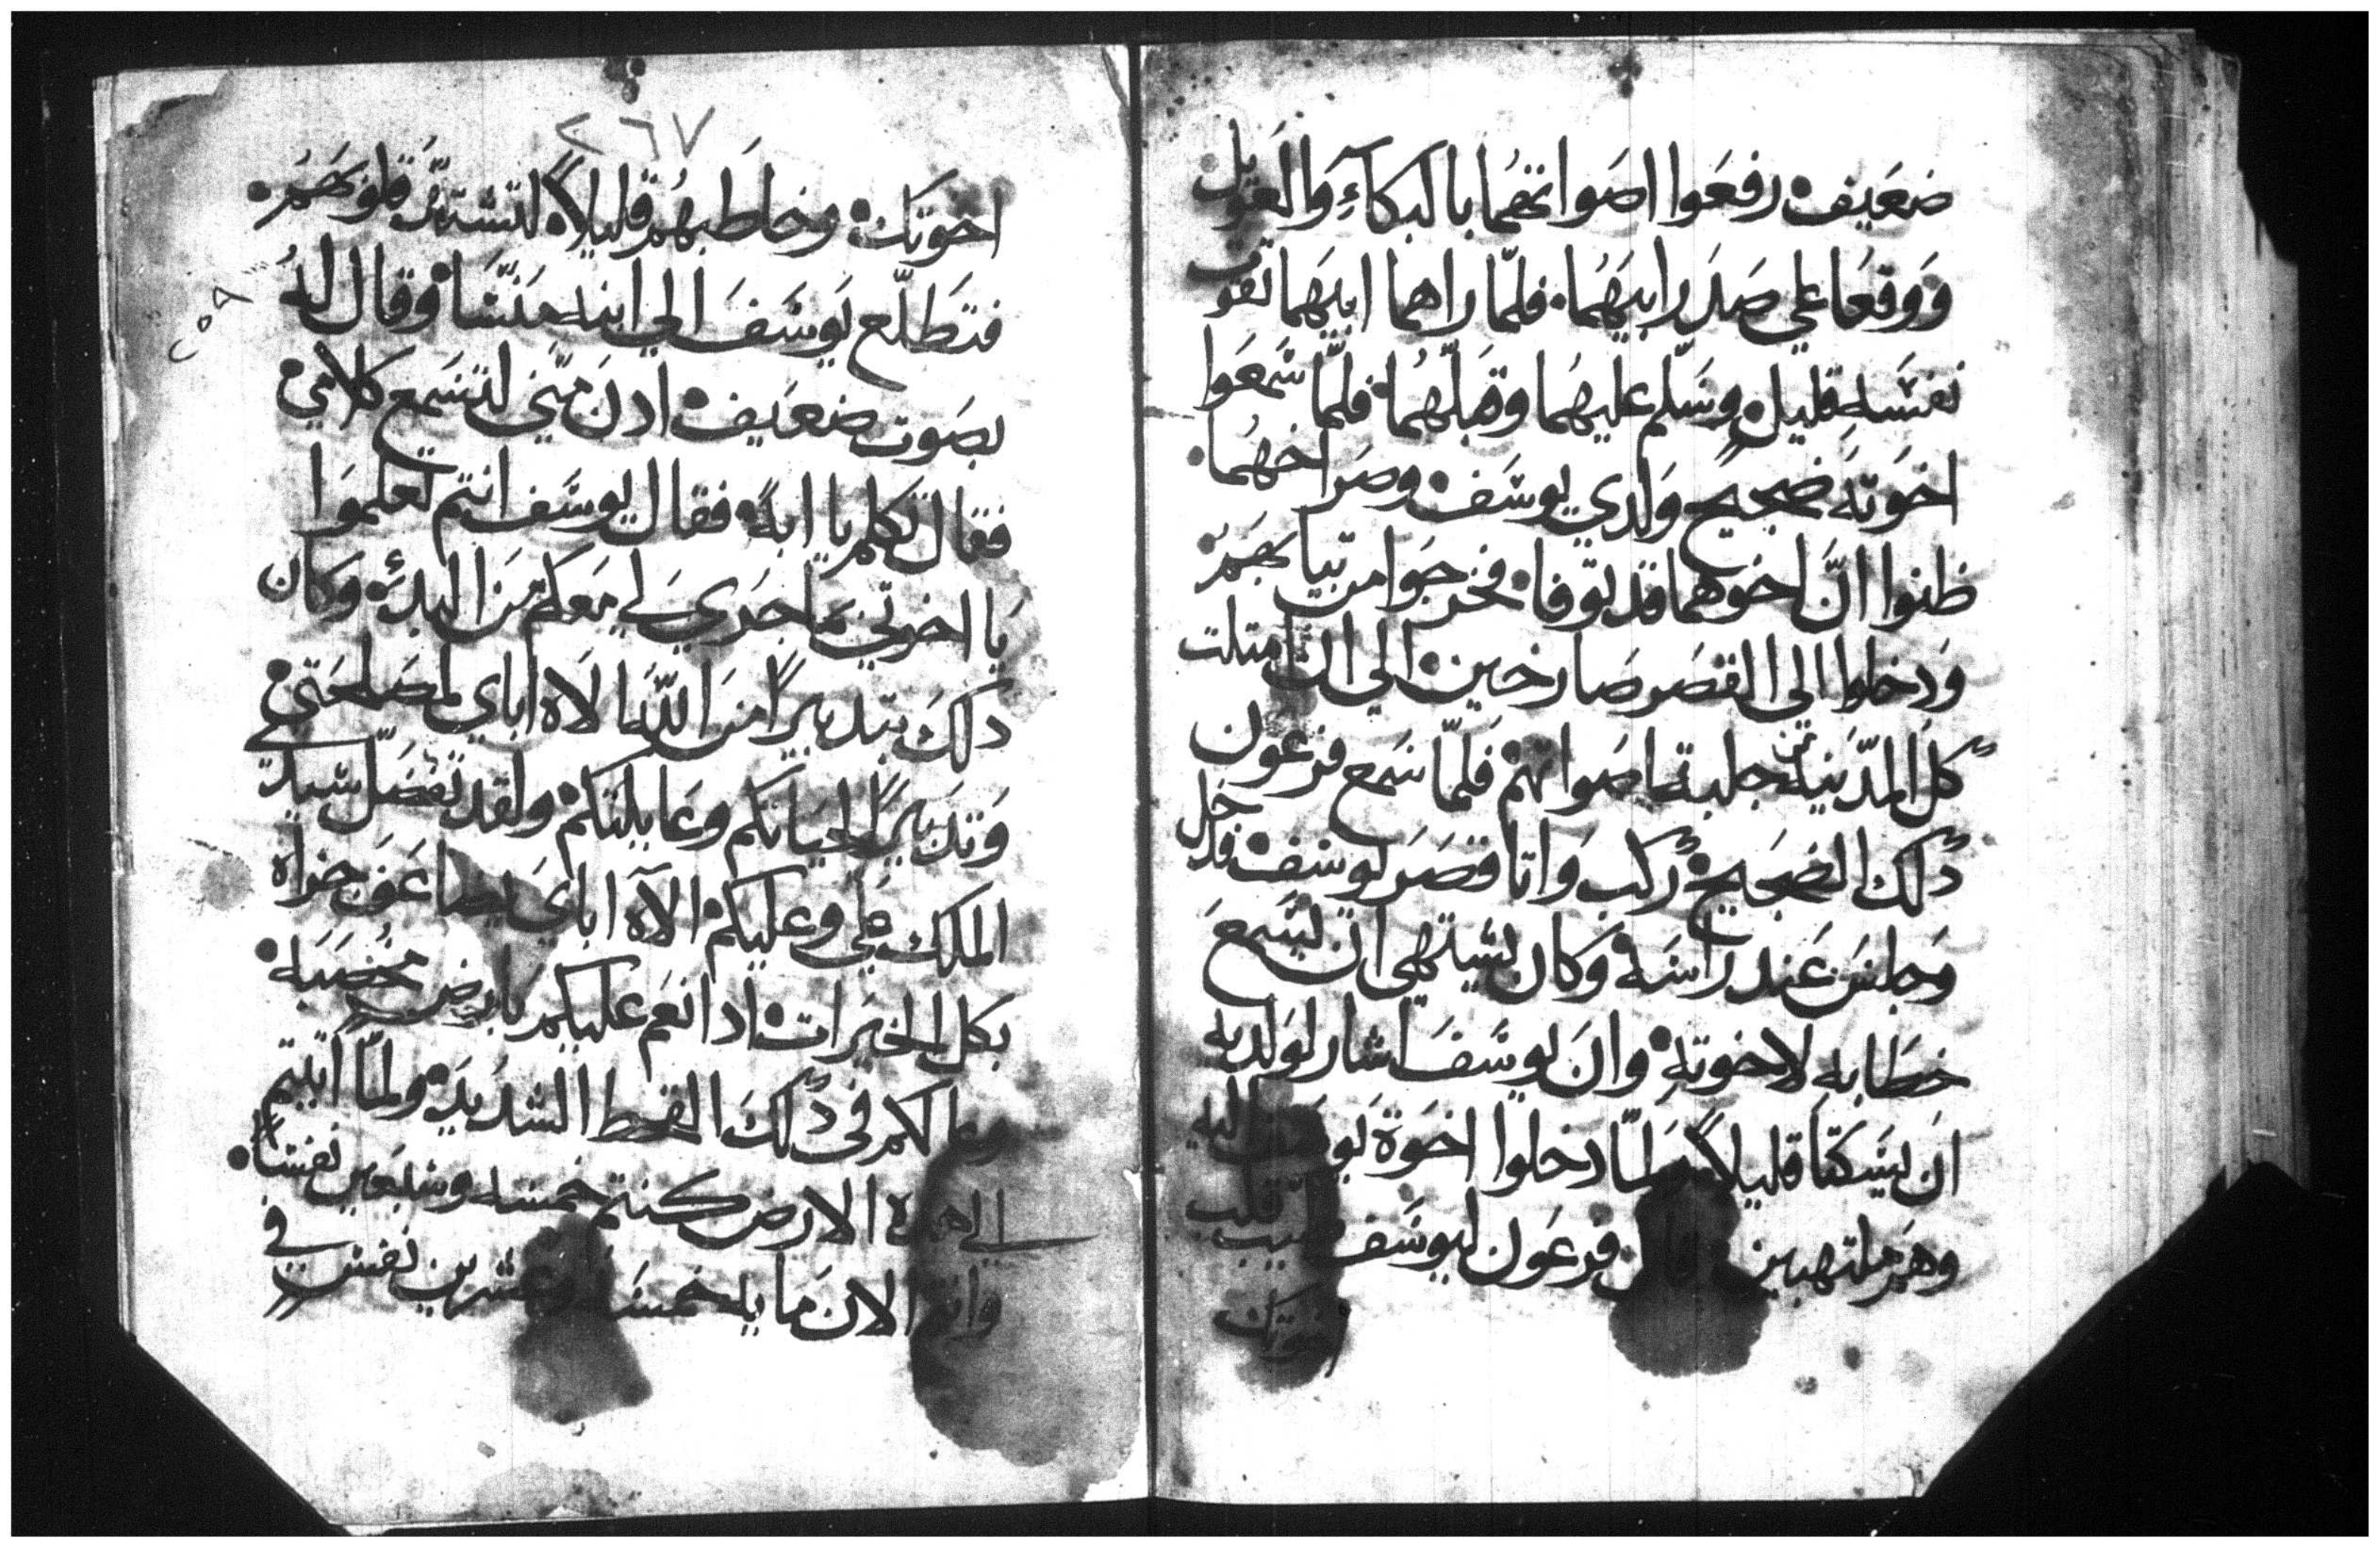 ضعيف رفعوا اصواتهما بالبكاء والعويل
ووقعا علي صدر ابيهما فلمّا راهما ابيهما تقوت
نفسه قليل وسلّم عليهما وقبلّهما فلمّا سمعوا
اخوته ضجيج ولدي يوسف وصراخهما
ظنوا انّ اخوهما قد توفا فخرجوا من تيابهم
ودخلوا الي القصر صارخين الي ان امتلت
كل المدينه من جلبة اصواتهم فلمّا سمع فرعون
دلك الضجيج ركب واتا قصر يوسف فدخل
وجلس عند راسه وكان يشتهي ان يسمع
خطابه لاخوته وان يوسف اشار لولديه
ان يسكتا قليلاً ولمّا دخلوا اخوة يوسف اليه
وهم ملتهبين قال فرعون ليوسف طيب قلب
اخوتك
٢٦٧
اخوتك وخاطبهم قليلاً لتشتدّ قلوبهم
فتطلّع يوسف الي ابنه منسّا وقال له
بصوت ضعيف ادن منّي لتسمع كلامي
فقال تكلم يا ابه فقال يوسف انتم تعلموا
يا اخوتي ما جري لي معكم من البدئ وكان
دلك بتدبيراً من اللّه الاه اباي لمصلحتي
وتدبيراً لحياتكم وعايلتكم ولقد تفضّل سيدي
الملك علي وعليكم الاه اباي يضاعف جزاه
بكل الخيرات اد انعم عليكم بارض مخصبه
وعالكم في دلك القحط الشديد ولمّا اتيتم
الي هده الارض كنتم خمسه وسبعين نفساً
وانتم الان مايه خمسه وعشرين نفس في